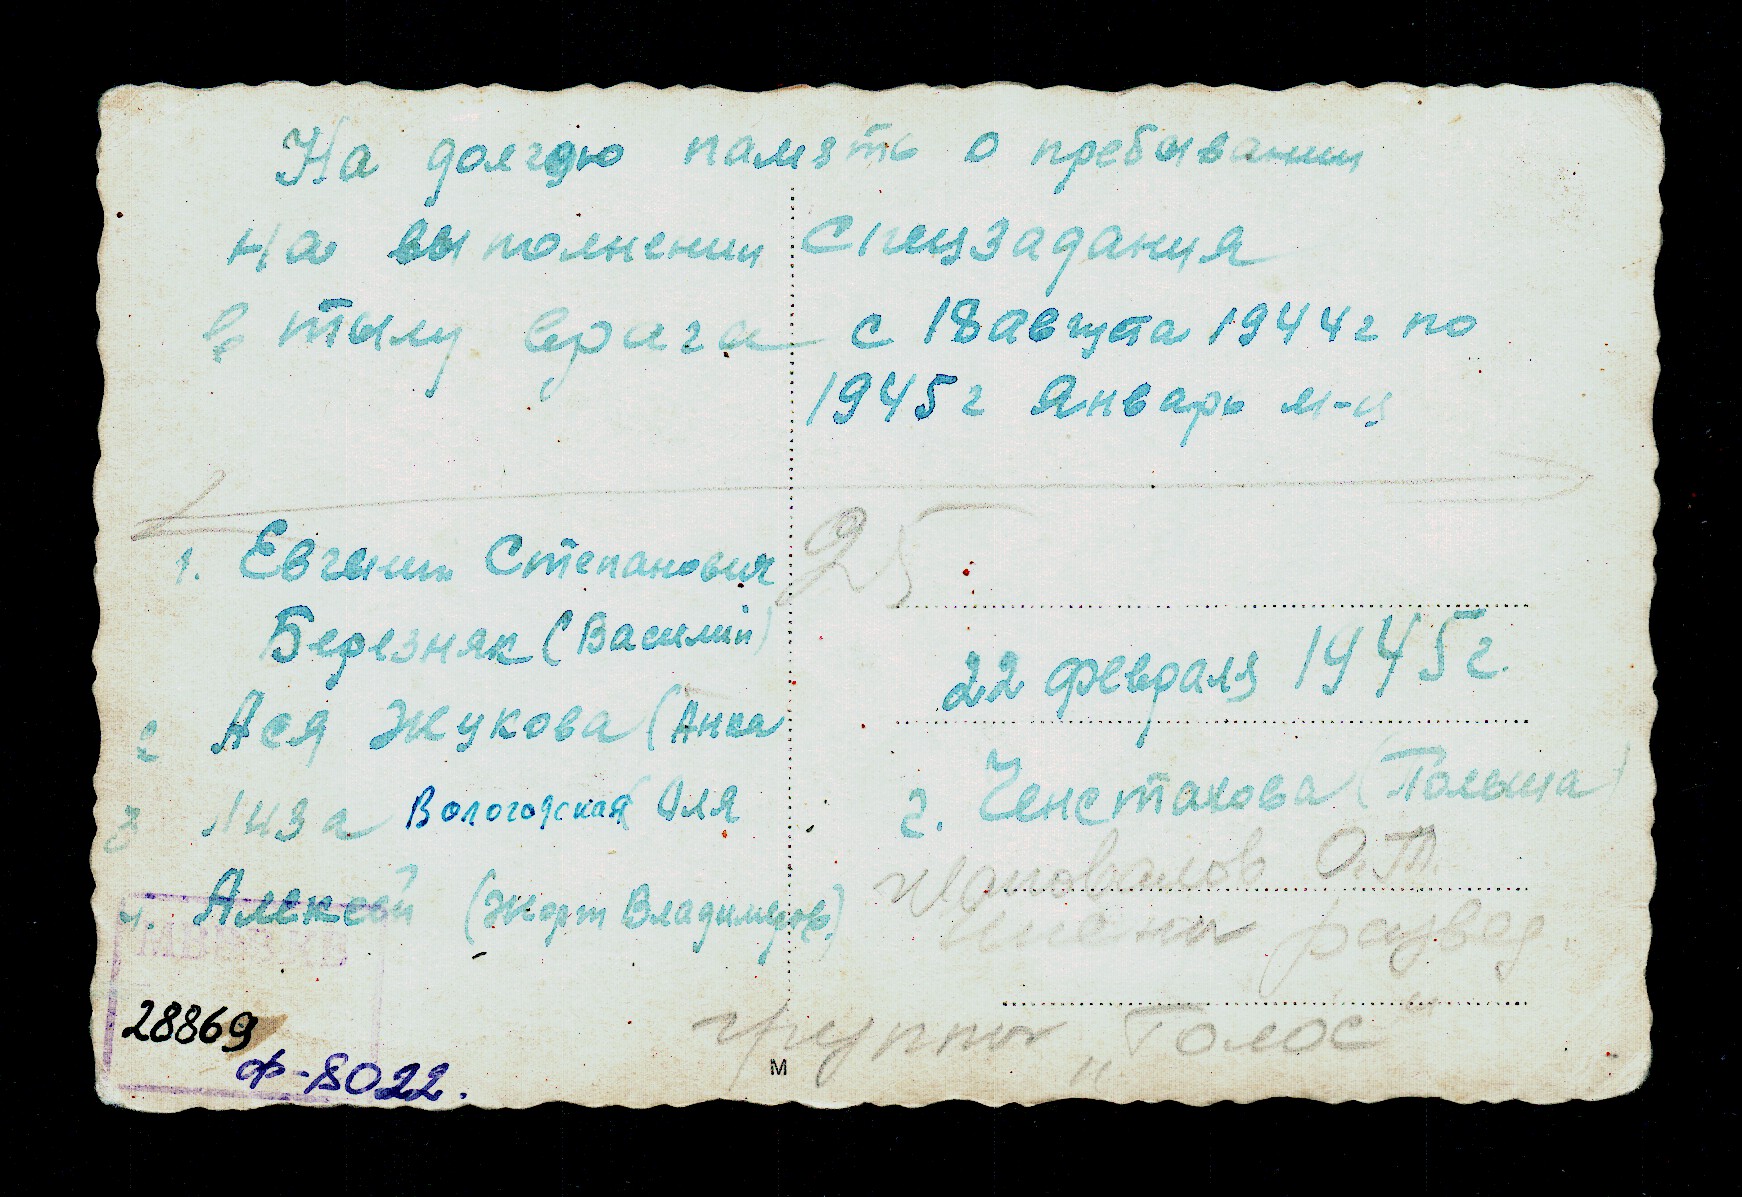 На долгую память о пребывании
на выполнении Спецзадания
в тылу врага с 18 августа 1944 г по
1945 г Январь м-ц
25
1. Евгений Степанович
Березняк (Василий)
2 Ася Жукова (Анка
3 Лиза Вологодская (Оля
4. Алексей (Жорж Владимиров)
22 февраля 1945 г.
г. Ченстахова (Польша)
Шаповалов О.Т.
члены развед.
группы „Голос"
28869
ф-8022.
М